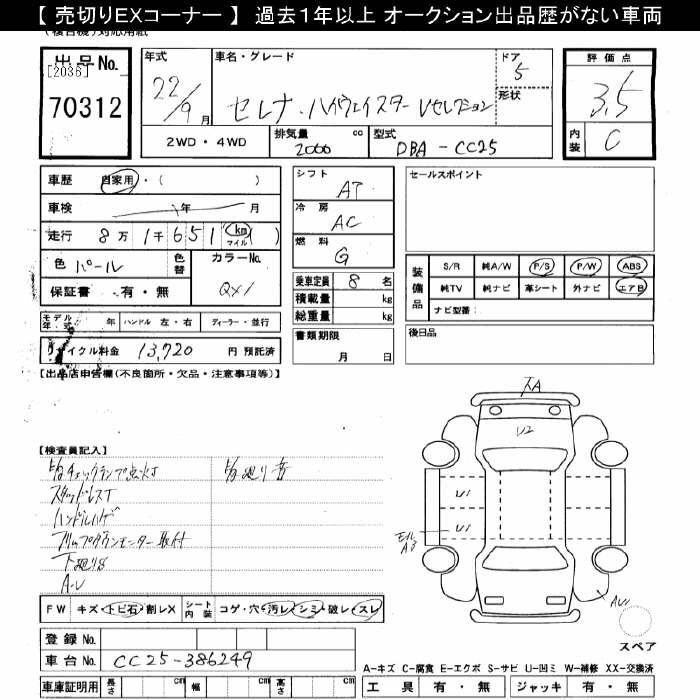 【 売切りEXコーナー 】 過去１年以上 オークション出品歴がない車両
出品No.
[2036]
70312
年式
22/9月
車名・グレード
セレナ・ハイウェイスター Vセレクション
ドア
5
形状
2WD・4WD
排気量
2000
cc
型式
DBA - CC25
評価点
3.5
内装
C
車歴 自家用・( )
車検 年 月
走行 8万1千651 km マイル ( )
色 パール 色替
カラーNo. QX1
保証書 有・無
モデル年式 年 ハンドル 左・右 ディーラー・並行
リサイクル料金 13,720 円 預託済
シフト AT
冷房 AC
燃料 G
乗車定員 8 名
積載量 kg
総重量 kg
書類期限
月 日
セールスポイント
装備品
S/R 純A/W P/S P/W ABS
純TV 純ナビ 革シート 外ナビ エアB
ナビ型番:
後日品
【出品店申告欄(不良箇所・欠品・注意事項等)】
【検査員記入】
スタッドレスT
ハンドルハゲ
フリップダウンモニター取付
下廻りS
FW キズ・トビ石・割レX シート内装 コゲ・穴・汚レ・シミ・破レ・スレ
登録No.
車台No. CC25-386249
車庫証明用 長さ cm 幅 cm 高さ cm
U2
U1
U1
スペア
A-キズ C-腐食 E-エクボ S-サビ U-凹ミ W-補修 XX-交換済
工具 有・無 ジャッキ 有・無